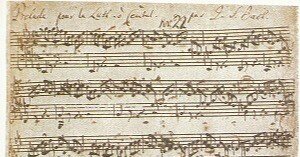 Prelude pour la Luth. ò Cembal. par J. S. Bach.